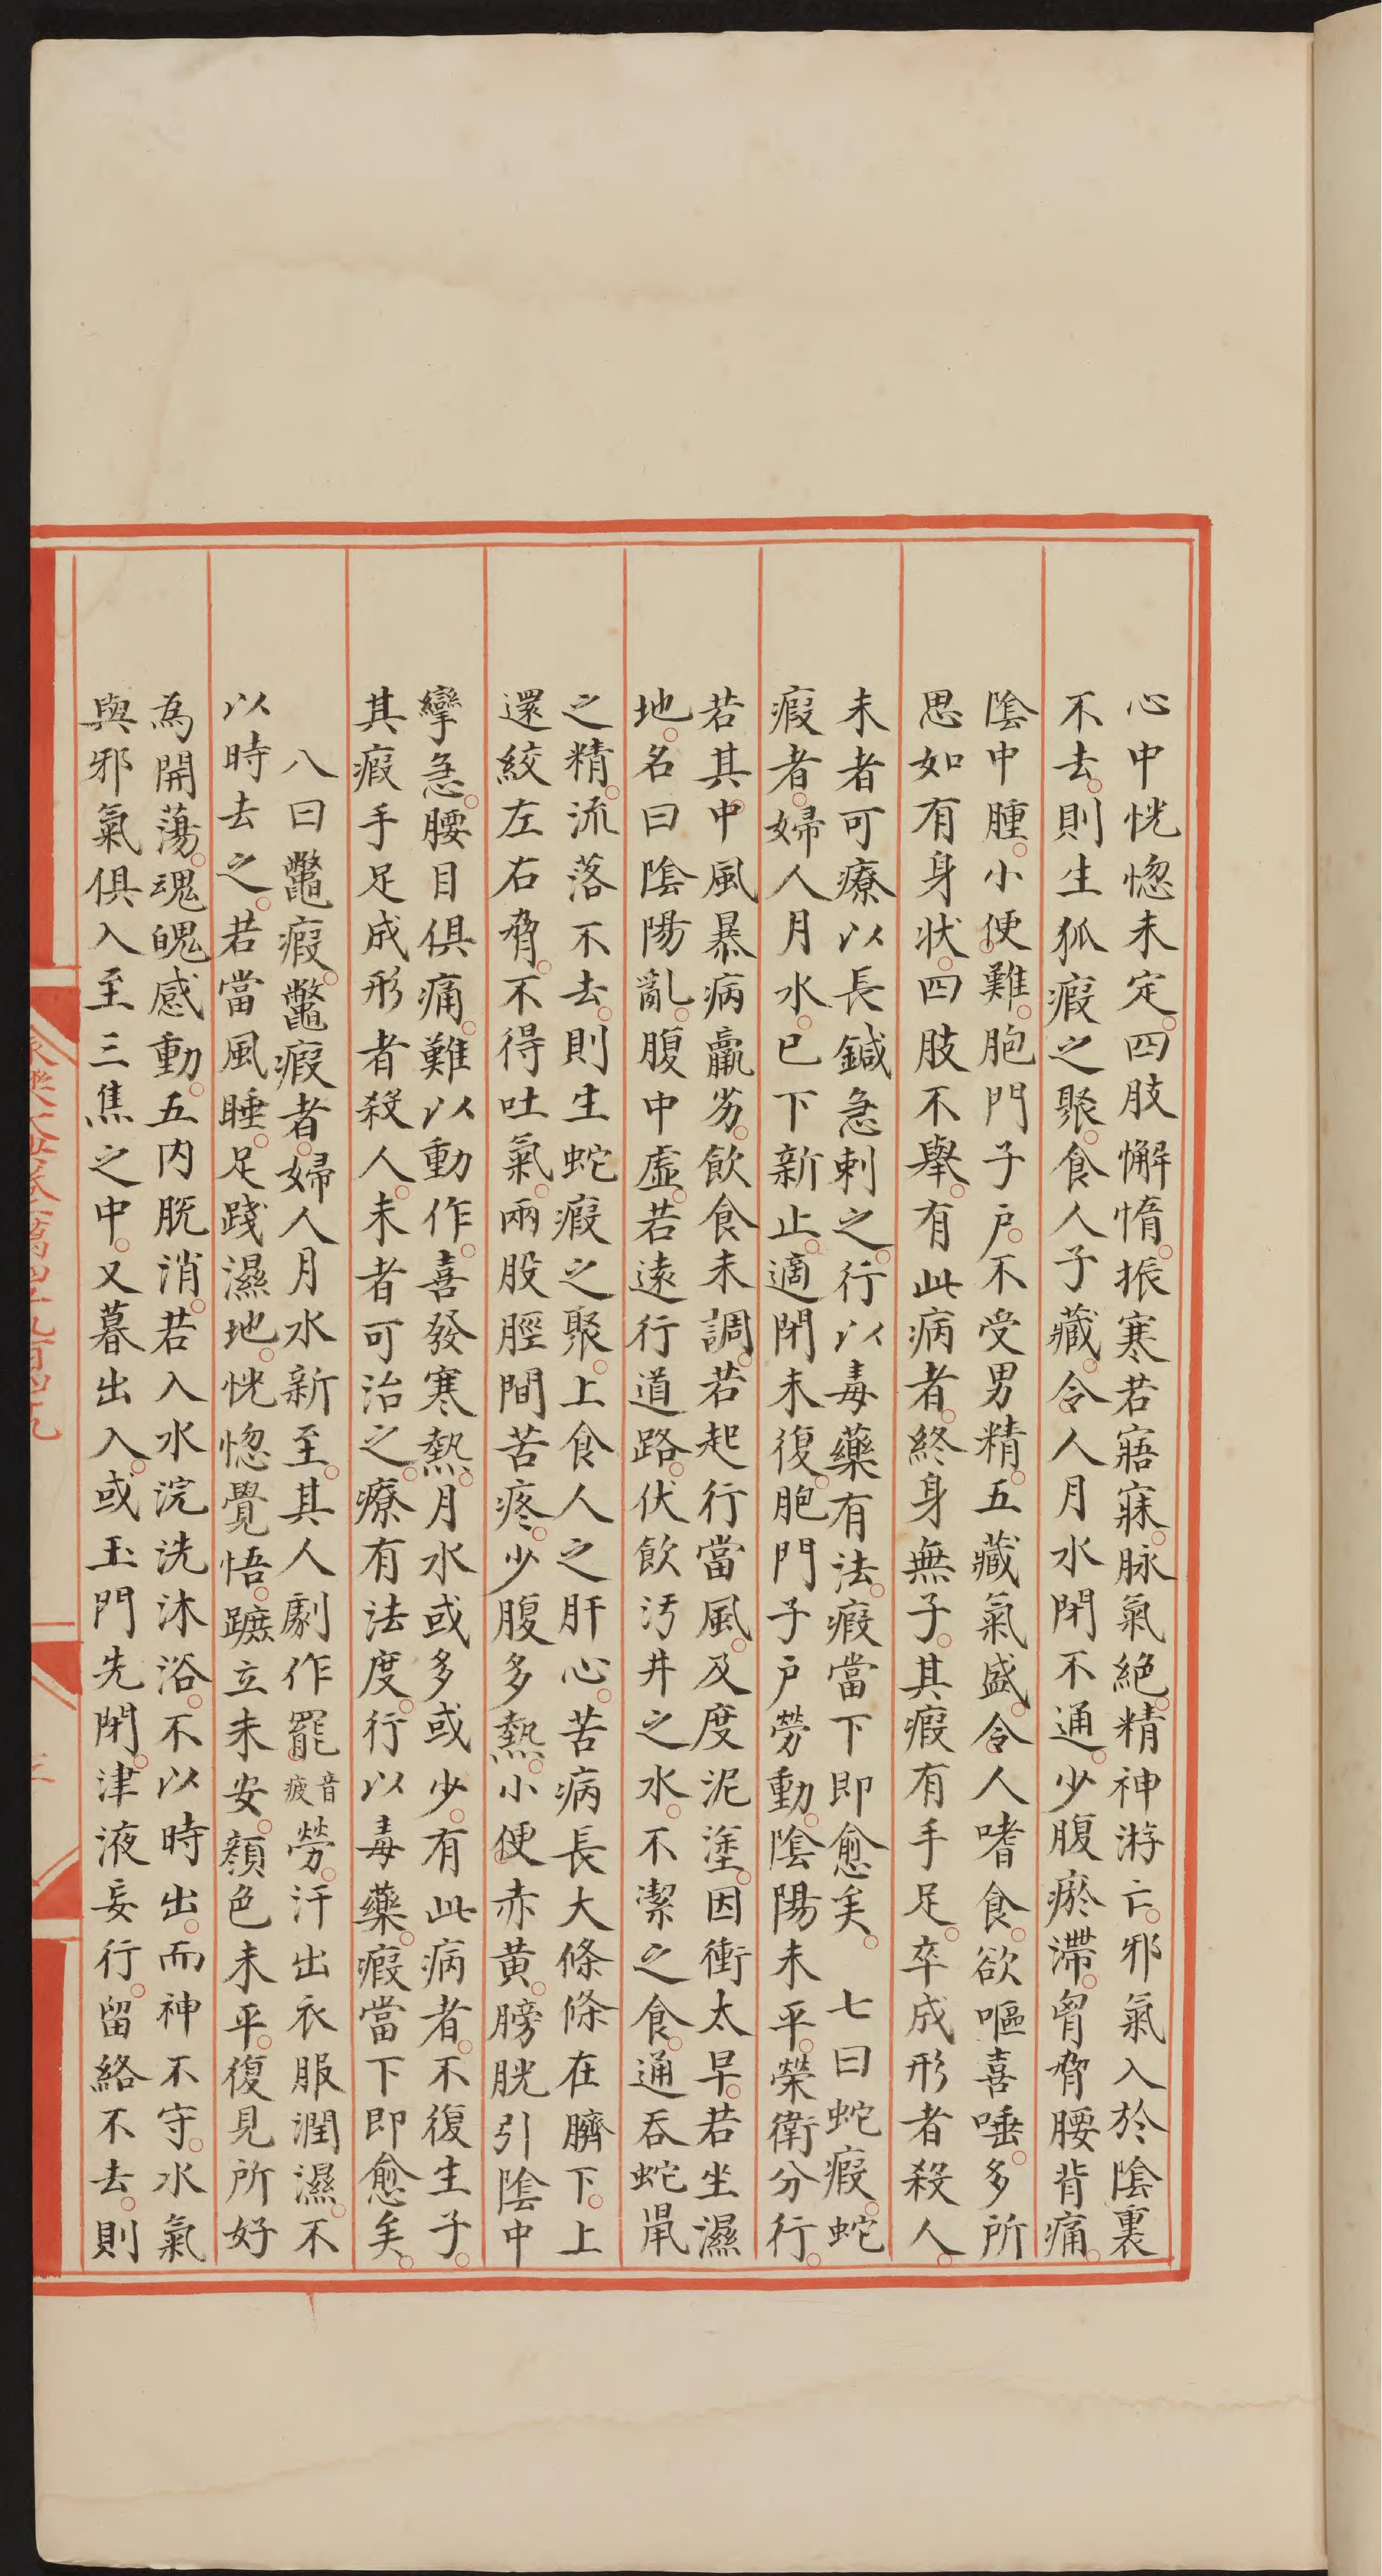 心中恍惚未定。四肢懈惰。振寒若寤寐。脉氣絶。精神游亡。邪氣入於陰裏
不去。則生狐瘕之聚。食人子藏。令人月水閉不通。少腹瘀滯。胷脅腰背痛。
陰中腫。小便難。胞門子戶。不受男精。五藏氣盛。令人嗜食。欲嘔喜唾。多所
思如有身狀。四肢不舉。有此病者。終身無子。其瘕有手足。卒成形者殺人。
未者可療以長鍼急刺之。行以毒藥有法。瘕當下即愈矣。　七曰蛇瘕。蛇
瘕者。婦人月水。已下新止。適閉未復。胞門子戶勞動。陰陽未平。榮衛分行。
若其中風暴病羸劣。飲食未調。若起行當風。及度泥塗。因衝太早。若坐濕
地。名曰陰陽亂。腹中虛。若遠行道路。伏飲污井之水。不潔之食。通吞蛇鼠
之精。流落不去。則生蛇瘕之聚。上食人之肝心。苦病長大條條在臍下。上
還絞左右脅。不得吐氣。兩股脛間苦疼。少腹多熱。小便赤黄。膀胱引陰中
攣急。腰目俱痛。難以動作。喜發寒熱。月水或多或少。有此病者。不復生子。
其瘕手足成形者殺人。未者可治之。療有法度。行以毒藥。瘕當下即愈矣。
八曰鼈瘕。鼈瘕者。婦人月水新至。其人劇作罷音疲勞。汗出衣服潤濕。不
以時去之。若當風睡。足踐濕地。恍惚覺悟。蹠立未安。顏色未平。復見所好
為開蕩。魂魄感動。五内脱消。若入水浣洗沐浴。不以時出。而神不守。水氣
與邪氣俱入至三焦之中。又暮出入。或玉門先閉。津液妄行。留絡不去。則